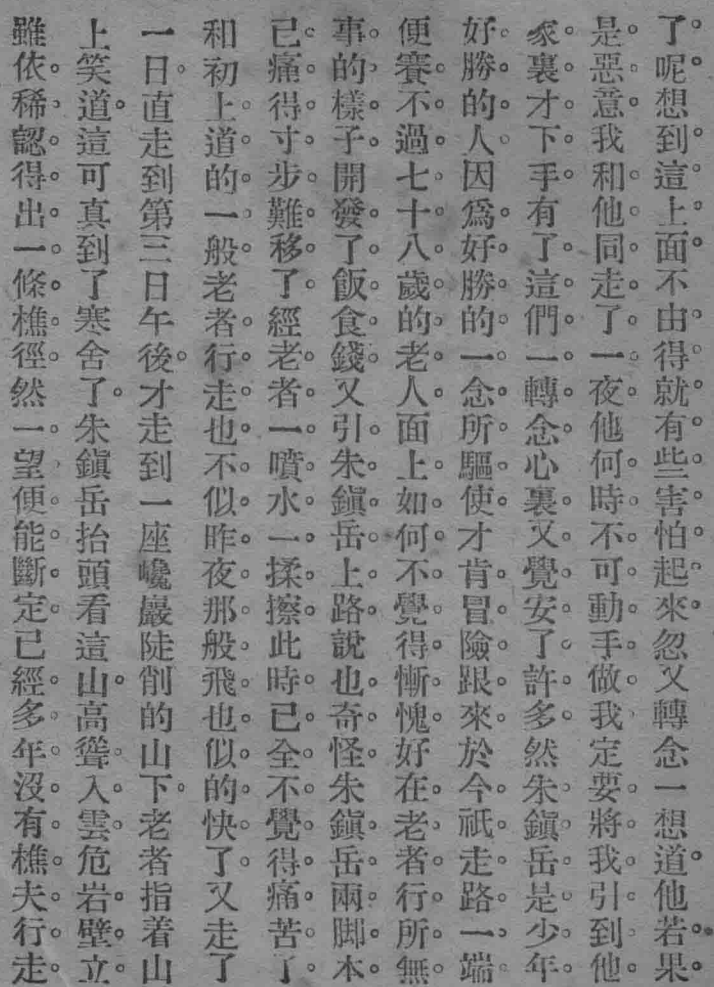 了呢想到這上面不由得就有些害怕起來忽又轉念一想道他若果
是惡意我和他同走了一夜他何時不可動手做我定要將我引到他
家裏才下手有了這們一轉念心裏又覺安了許多然朱鎭岳是少年
好勝的人因爲好勝的一念所驅使才肯冒險跟來於今祇走路一端
便賽不過七十八歲的老人面上如何不覺得慚愧好在老者行所無
事的樣子開發了飯食錢又引朱鎭岳上路說也奇怪朱鎭岳兩脚本
已痛得寸步難移了經老者一噴水一揉擦此時已全不覺得痛苦了
和初上道的一般老者行走也不似昨夜那般飛也似的快了又走了
一日直走到第三日午後才走到一座巉巖陡削的山下老者指着山
上笑道這可真到了寒舍了朱鎭岳抬頭看這山高聳入雲危岩壁立
雖依稀認得出一條樵徑然一望便能斷定已經多年沒有樵夫行走